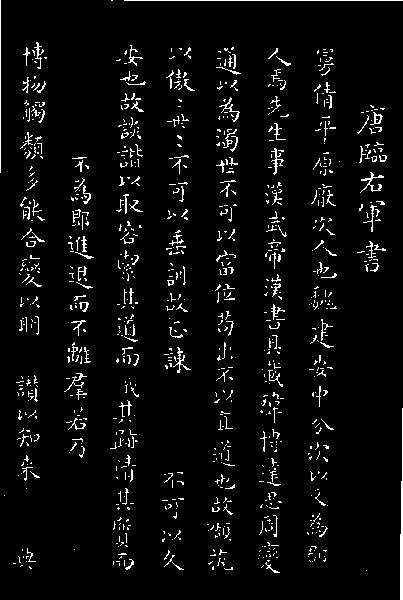 唐臨右軍書
倩平原厭次人也魏建安中分次以又為郡
人焉先生事漢武帝漢書具載瑋博達思周變
通以為濁世不可以富位苟出不以直道也故頡抗
以傲〻世〻不可以垂訓故正諫 不可以久
安也故談諧以取容潔其道而 其跡清其質而
不為耶進退而不離群若乃
博物觸類多能合變以明 讃以知来 典